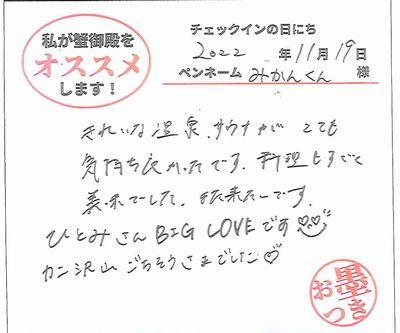 私が蟹御殿を
オススメ
します!
チェックインの日にち
2022 年 11月 19日
ペンネーム みかんくん 様
きれいな温泉、サウナが とても
気持ち良かったです。料理もすごく
美味でした。また来たーです。
ひとみさん BIG LOVEです
カニ沢山 ごちそうさまでした♡
お墨つき